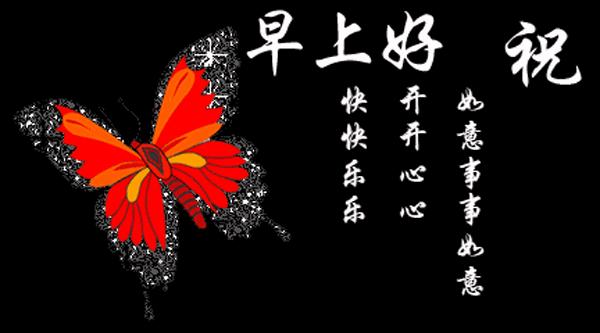 早上好 祝
快快乐乐
开开心心
如意事事如意